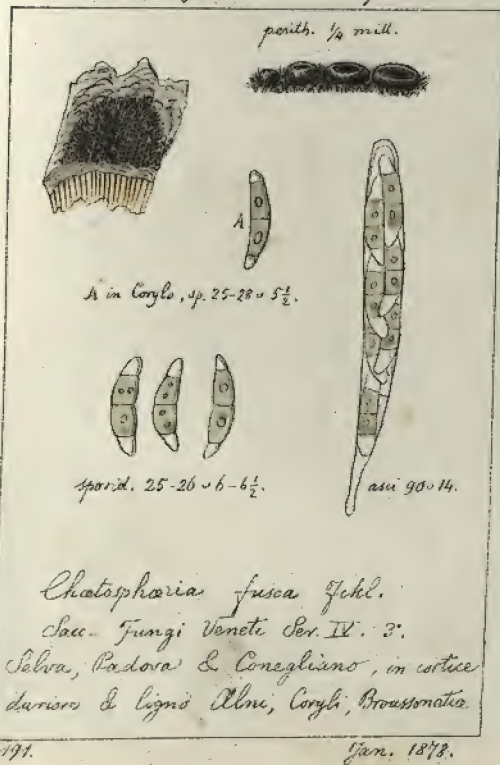 perith. ¼ mill.
A
A in Corylo, sp. 25-28 ⌣ 5½.
sporid. 25-26 ⌣ 6-6½.
asci 90 ⌣ 14.
Chætosphæria fusca Fckl.
Sacc. Fungi Veneti Ser. IV. 3.
Selva, Padova & Conegliano, in cortice
duriore & ligno Alni, Coryli, Broussonetiæ
191.
Jan. 1878.